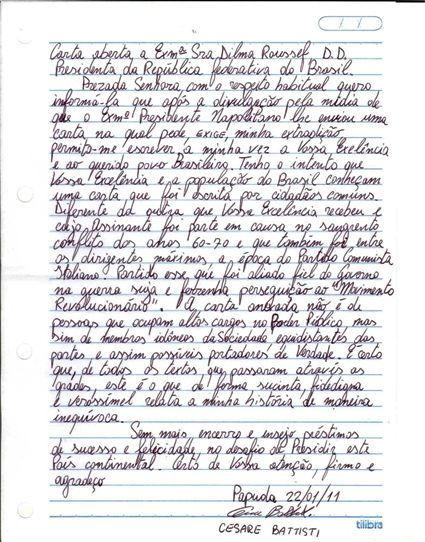 Carta aberta a Exmª Sra Dilma Roussef D.D.
Presidenta da República federativa do Brasil.
Prezada Senhora, com o respeito habitual quero
informá-la que após a divulgação pela mídia de
que o Exmº Presidente Napolitano lhe enviou uma
carta na qual pede, EXIGE, minha extradição,
permito-me escrever a minha vez a Vossa Exelência
e ao querido povo Brasileiro. Tenho o intento que
Vossa Excelência e a população do Brasil conheçam
uma carta que foi escrita por cidadãos comuns.
Diferente da que Vossa Excelência recebeu e
cujo assinante foi parte em causa no sangrento
conflito dos anos 60-70 e que também foi entre
os dirigentes máximos, a época do Partido Comunista
Italiano. Partido esse, que foi aliado fiel do governo
na guerra suja e perseguição ao "Movimento
Revolucionário". A carta anexada não é de
pessoas que ocupam altos cargos no Poder Público, mas
sim de membros idôneos da Sociedade equidistantes das
partes e assim possíveis portadores de Verdade. É certo
que, de todos os textos, que passaram através as
grades, este é o que de forma sucinta, fidedigna
e verossímel relata a minha história de maneira
inequívoca.
Sem mais encerro e ensejo préstimos
de sucesso e felicidade, no desafio de Presidir este
País continental. Certo de Vossa atenção, firmo e
agradeço
Papuda 22/01/11
CESARE BATTISTI
tilibra